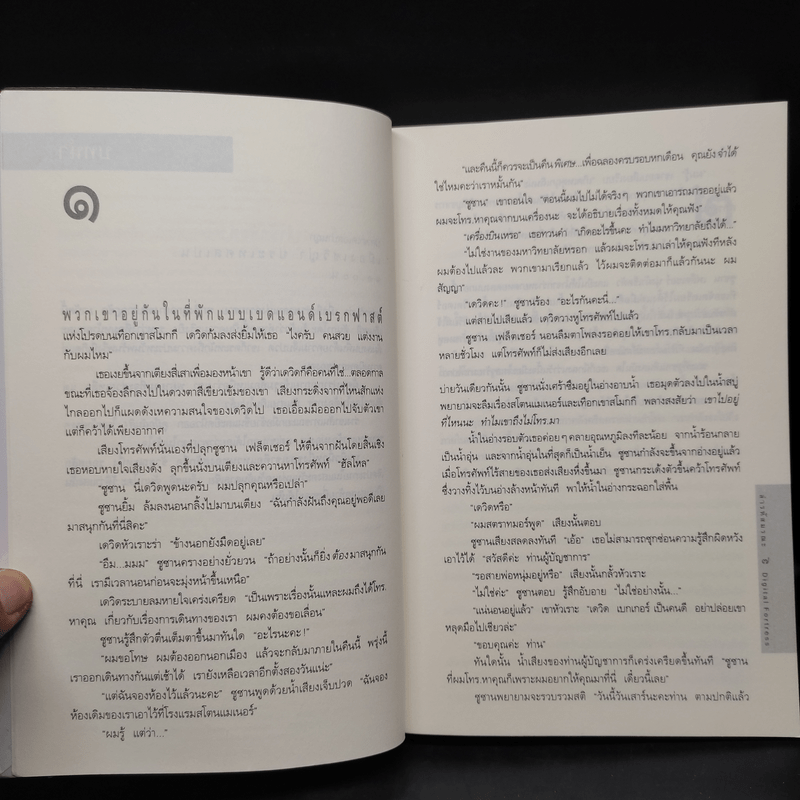 ๑
พวกเขาอยู่กันในที่พักแบบเบดแอนด์เบรกฟาสต์
แห่งโปรดบนเทือกเขาสโมกกี เดวิดก้มลงส่งยิ้มให้เธอ "ไงครับ คนสวย แต่งงาน
กับผมไหม"
เธอเงยขึ้นจากเตียงสี่เสาเพื่อมองหน้าเขา รู้ดีว่าเดวิดก็คือคนที่ใช่...ตลอดกาล
ขณะที่เธอจ้องลึกลงไปในดวงตาสีเขียวเข้มของเขา เสียงกระดิ่งจากที่ไหนสักแห่ง
ไกลออกไปก็แผดดังเหความสนใจของเดวิดไป เธอเอื้อมมือออกไปจับตัวเขา
แต่ก็คว้าได้เพียงอากาศ
เสียงโทรศัพท์นั่นเองที่ปลุกซูซาน เฟล็ตเชอร์ ให้ตื่นจากฝันโดยสิ้นเชิง
เธอหอบหายใจเสียงดัง ลุกขึ้นนั่งบนเตียงและควานหาโทรศัพท์ "ฮัลโหล"
"ซูซาน นี่เดวิดพูดนะครับ ผมปลุกคุณหรือเปล่า"
ซูซานยิ้ม ล้มลงนอนกลิ้งไปมาบนเตียง "ฉันกำลังฝันถึงคุณอยู่พอดีเลย
มาสนุกกันที่นี่สิคะ"
เดวิดหัวเราะร่า "ข้างนอกยังมืดอยู่เลย"
"อืม...มมม" ซูซานครางอย่างยั่วยวน "ถ้าอย่างนั้นก็ยิ่งต้องมาสนุกกัน
ที่นี่ เรามีเวลานอนก่อนจะมุ่งหน้าขึ้นเหนือ"
เดวิดระบายลมหายใจเคร่งเครียด "เป็นเพราะเรื่องนั้นแหละผมถึงได้โทร.
หาคุณ เกี่ยวกับเรื่องการเดินทางของเรา ผมคงต้องขอเลื่อน"
ซูซานรู้สึกตัวตื่นเต็มตาขึ้นมาทันใด "อะไรนะคะ!"
"ผมขอโทษ ผมต้องออกนอกเมือง แล้วจะกลับมาภายในคืนนี้ พรุ่งนี้
เราออกเดินทางกันแต่เช้าได้ เรายังเหลือเวลาอีกตั้งสองวันแน่ะ"
"แต่ฉันจองห้องไว้แล้วนะคะ" ซูซานพูดด้วยน้ำเสียงเจ็บปวด "ฉันจอง
ห้องเดิมของเราเอาไว้ที่โรงแรมสโตนแมเนอร์"
"ผมรู้ แต่ว่า..."
"และคืนนี้ก็ควรจะเป็นคืนพิเศษ...เพื่อฉลองครบรอบหกเดือน คุณยังจำได้
ใช่ไหมคะว่าเราหมั้นกัน"
"ซูซาน" เขาถอนใจ "ตอนนี้ผมไปไม่ได้จริงๆ พวกเขาเอารถมารออยู่แล้ว
ผมจะโทร.หาคุณจากบนเครื่องนะ จะได้อธิบายเรื่องทั้งหมดให้คุณฟัง"
"เครื่องบินเหรอ" เธอทวนคำ "เกิดอะไรขึ้นคะ ทำไมมหาวิทยาลัยถึงได้..."
"ไม่ใช่งานของมหาวิทยาลัยหรอก แล้วผมจะโทร.มาเล่าให้คุณฟังทีหลัง
ผมต้องไปแล้วละ พวกเขามาเรียกแล้ว ไว้ผมจะติดต่อมาก็แล้วกันนะ ผม
สัญญา"
"เดวิดคะ!" ซูซานร้อง "อะไรกันคะนี่..."
แต่สายไปเสียแล้ว เดวิดวางหูโทรศัพท์ไปแล้ว
ซูซาน เฟล็ตเชอร์ นอนลืมตาโพลงรอคอยให้เขาโทร.กลับมาเป็นเวลา
หลายชั่วโมง แต่โทรศัพท์ก็ไม่ส่งเสียงอีกเลย
บ่ายวันเดียวกันนั้น ซูซานนั่งเศร้าซึมอยู่ในอ่างอาบน้ำ เธอมุดตัวลงไปในน้ำสบู่
พยายามจะลืมเรื่องสโตนแมเนอร์และเทือกเขาสโมกกี พลางสงสัยว่า เขาไปอยู่
ที่ไหนนะ ทำไมเขาถึงไม่โทร.มา
น้ำในอ่างรอบตัวเธอค่อยๆ คลายอุณหภูมิลงทีละน้อย จากน้ำร้อนกลาย
เป็นน้ำอุ่น และจากน้ำอุ่นในที่สุดก็เป็นน้ำเย็น ซูซานกำลังจะขึ้นจากอ่างอยู่แล้ว
เมื่อโทรศัพท์ไร้สายของเธอส่งเสียงหึ่งขึ้นมา ซูซานกระเด้งตัวขึ้นคว้าโทรศัพท์
ซึ่งวางทิ้งไว้บนอ่างล้างหน้าทันที พาให้น้ำในอ่างกระฉอกใส่พื้น
"เดวิดหรือ"
"ผมสตราทมอร์พูด" เสียงนั้นตอบ
ซูซานเสียงสลดลงทันที "เอ้อ" เธอไม่สามารถซุกซ่อนความรู้สึกผิดหวัง
เอาไว้ได้ "สวัสดีค่ะ ท่านผู้บัญชาการ"
"รอสายพ่อหนุ่มอยู่หรือ" เสียงนั้นกลั้วหัวเราะ
"ไม่ใช่ค่ะ" ซูซานตอบ รู้สึกอับอาย "ไม่ใช่อย่างนั้น..."
"แน่นอนอยู่แล้ว" เขาหัวเราะ "เดวิด เบกเกอร์ เป็นคนดี อย่าปล่อยเขา
หลุดมือไปเชียวล่ะ"
"ขอบคุณค่ะ ท่าน"
ทันใดนั้น น้ำเสียงของท่านผู้บัญชาการก็เคร่งเครียดขึ้นทันที "ซูซาน
ที่ผมโทร.หาคุณก็เพราะผมอยากให้คุณมาที่นี่ เดี๋ยวนี้เลย"
ซูซานพยายามจะรวบรวมสติ "วันนี้วันเสาร์นะคะท่าน ตามปกติแล้ว
Digital Fortress